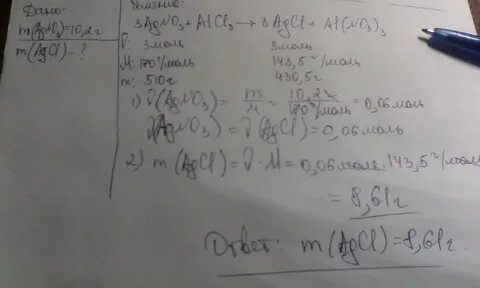 Дано:
m(AgNO₃)=10,2г
m(AgCl) - ?
Решение
3AgNO₃ + AlCl₃ → 3AgCl + Al(NO₃)₃
ν: 3моль 3моль
M: 170г/моль 143,5г/моль
m: 510г 430,5г
1) ν(AgNO₃) = m/M = 10,2г/170г/моль = 0,06моль
ν(AgNO₃) = ν(AgCl) = 0,06моль
2) m(AgCl) = ν·M = 0,06моль·143,5г/моль
= 8,61г
Ответ: m(AgCl)=8,61г.